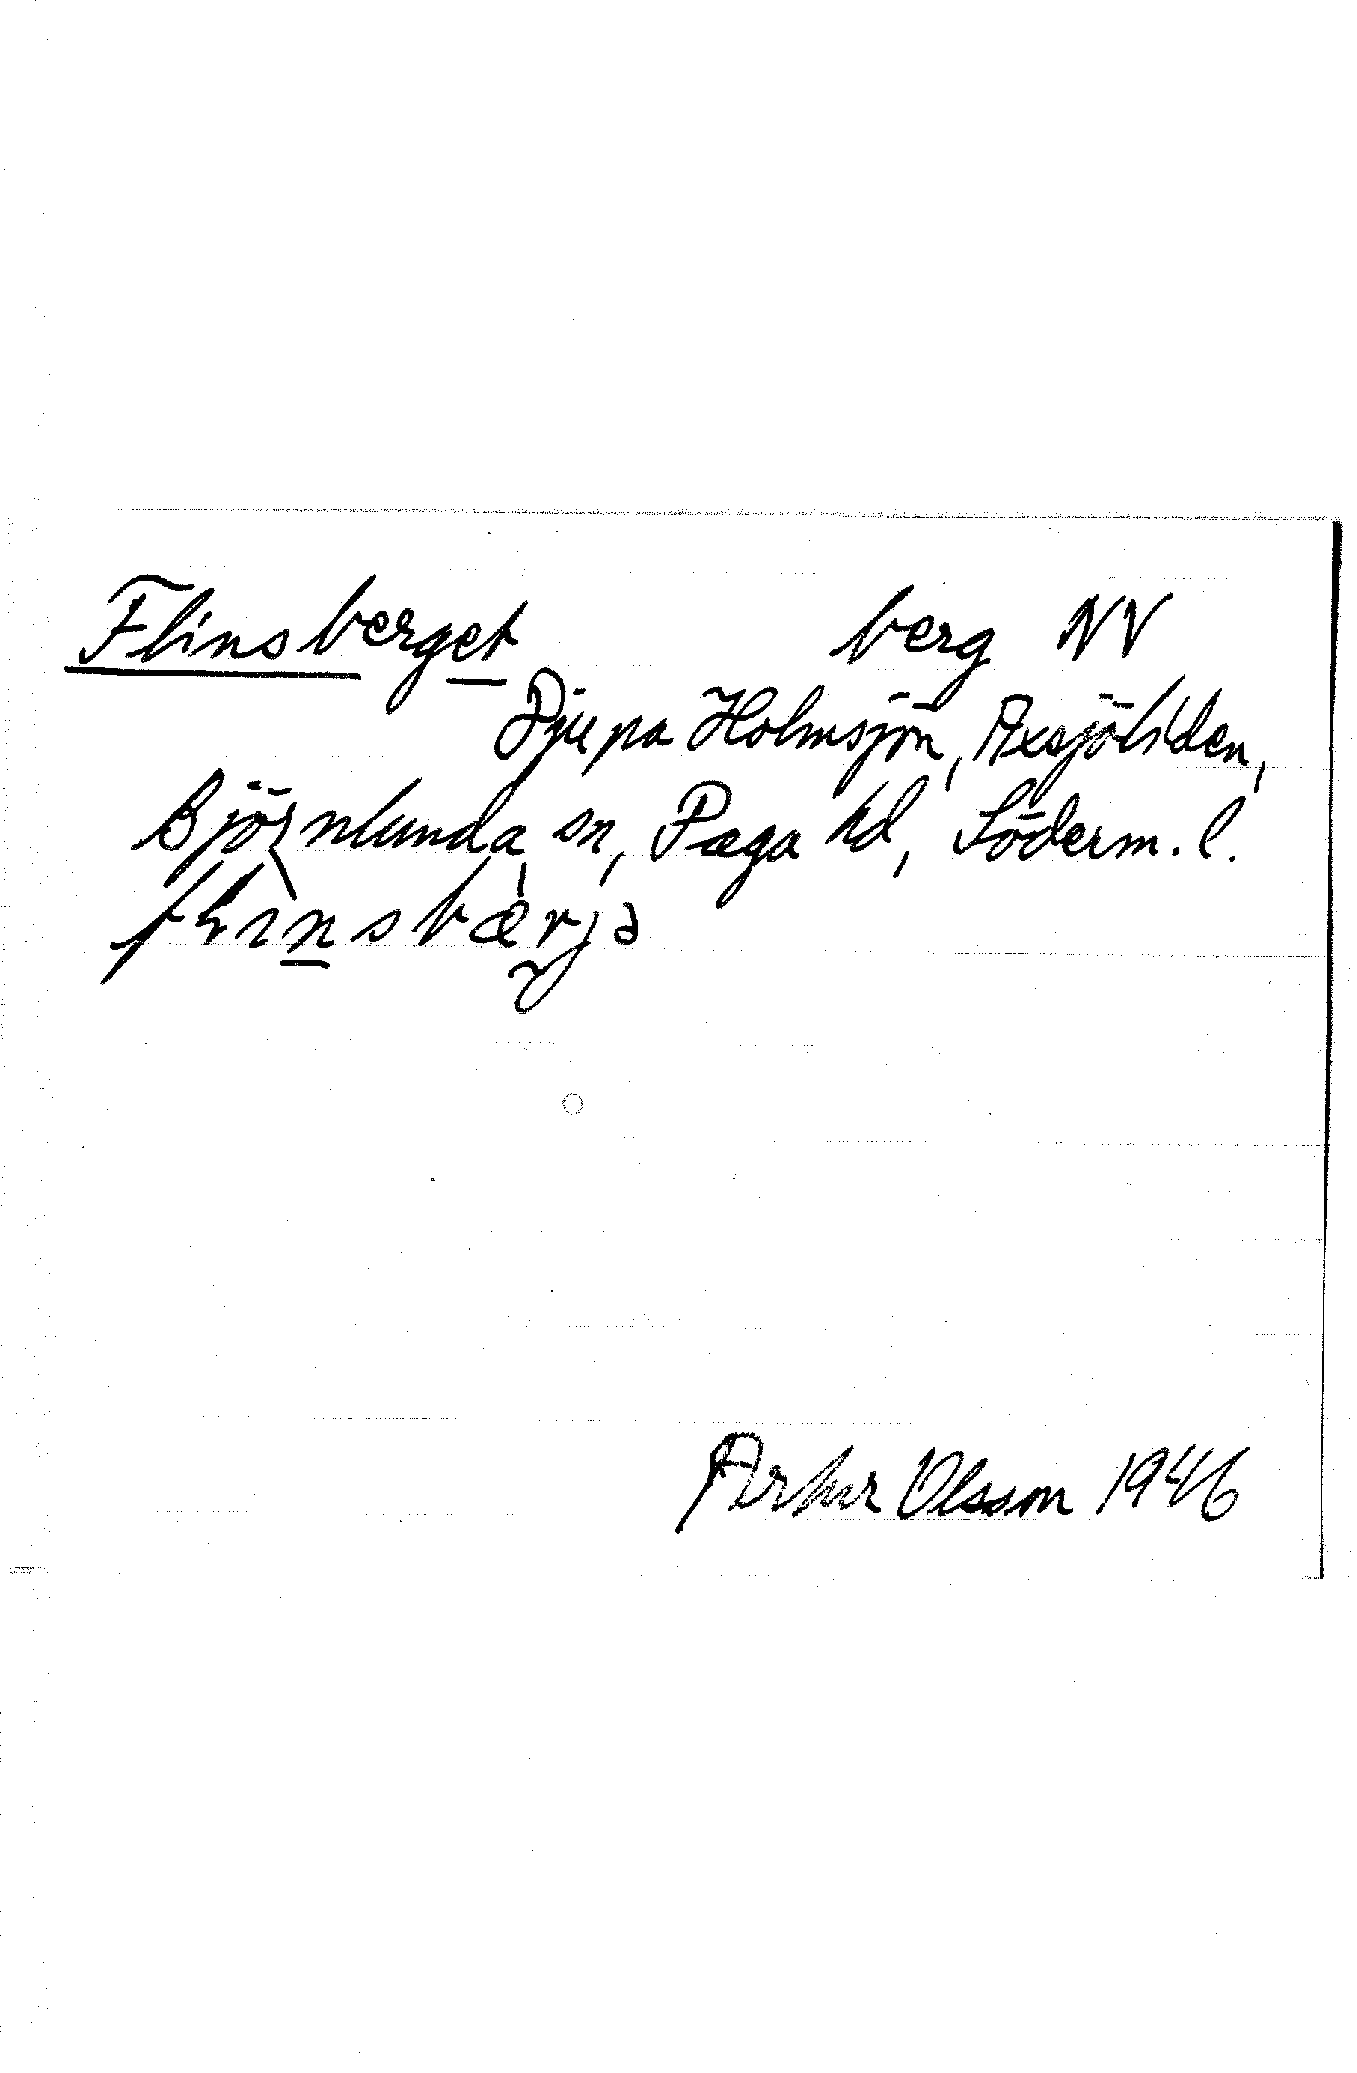 Flinsberget berg NV
Djupa Holmsjön, Axsjöliden,
Björnlunda sn, Daga hd, Söderm. l.
Artur Olsson 1946